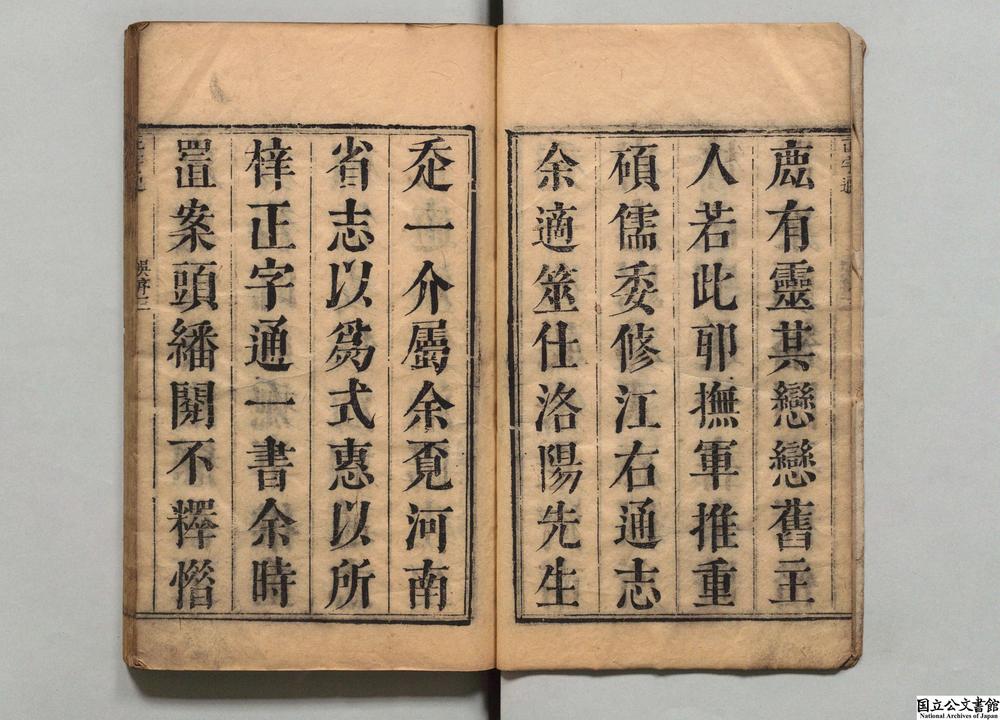 鹿有靈其戀戀舊主
人若此卭撫軍推重
碩儒委修江右通志
余適筮仕洛陽先生
走一介屬余覔河南
省志以爲式惠以所
梓正字通一書余時
置案頭繙閱不釋
正字通
国立公文書館
National Archives of Japan